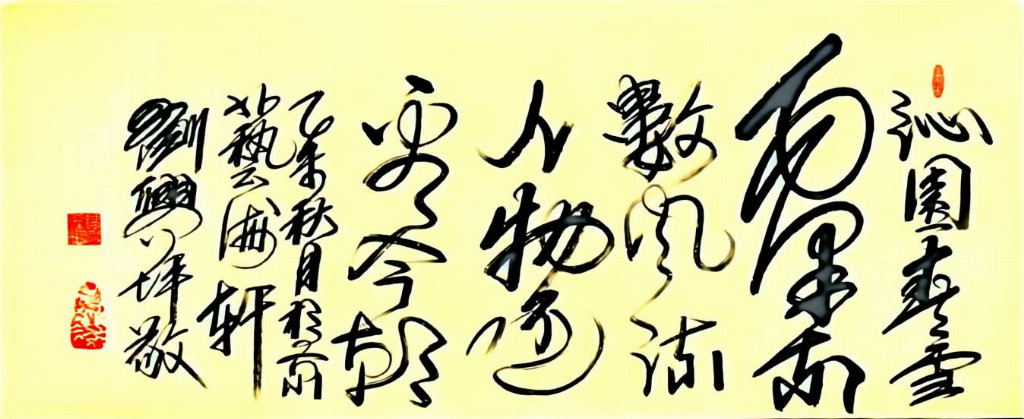 沁園春雪
數風流
人物還
看今朝
乙未秋月於京
藝海軒
劉興坪敬